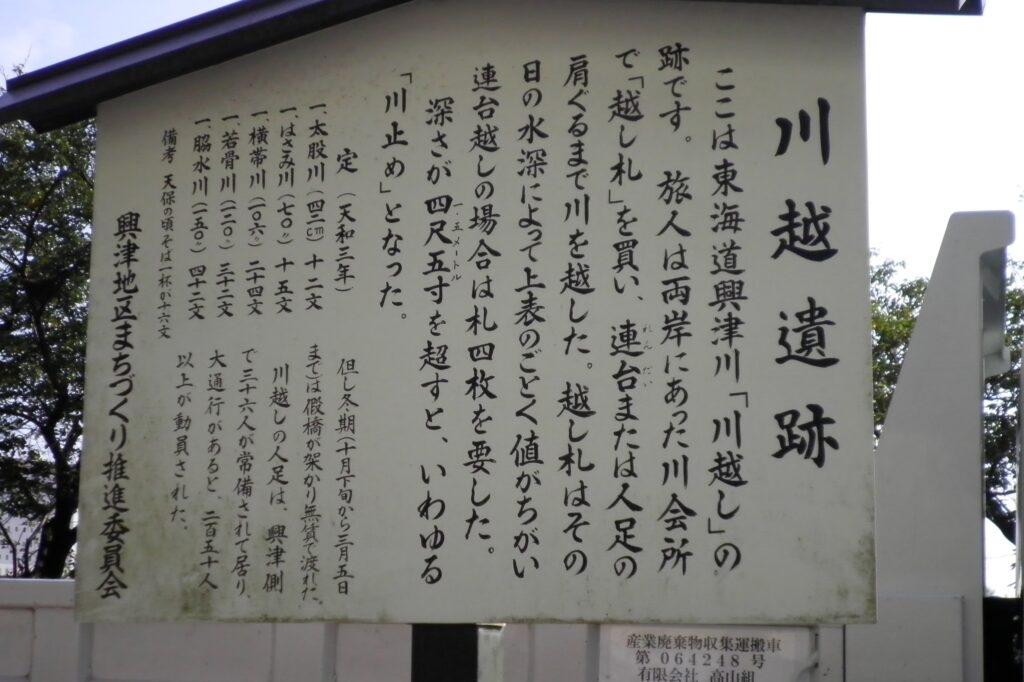 川越遺跡
ここは東海道興津川「川越し」の
跡です。旅人は両岸にあった川会所
で「越し札」を買い、連台または人足の
れんだい
肩ぐるまで川を越した。越し札はその
日の水深によって上表のごとく値がちがい
連台越しの場合は札四枚を要した。
深さが四尺五寸を超すと、いわゆる
一・五メートル
「川止め」となった。
定(天和三年)
一、太股川(四二cm)十二文
一、はさみ川(七〇〃)十五文
一、横帯川(一〇六〃)二十四文
一、若骨川(一二〇〃)三十二文
一、脇水川(一五〇〃)四十二文
備考 天保の頃そば一杯が十六文
但し冬期(十月下旬から三月五日
まで)は假橋が架かり無賃で渡れた。
川越しの人足は、興津側
で三十六人が常備されて居り、
大通行があると、二百五十人
以上が動員された、
興津地区まちづくり推進委員会
産業廃棄物収集運搬車
第064248号
有限会社 高山組